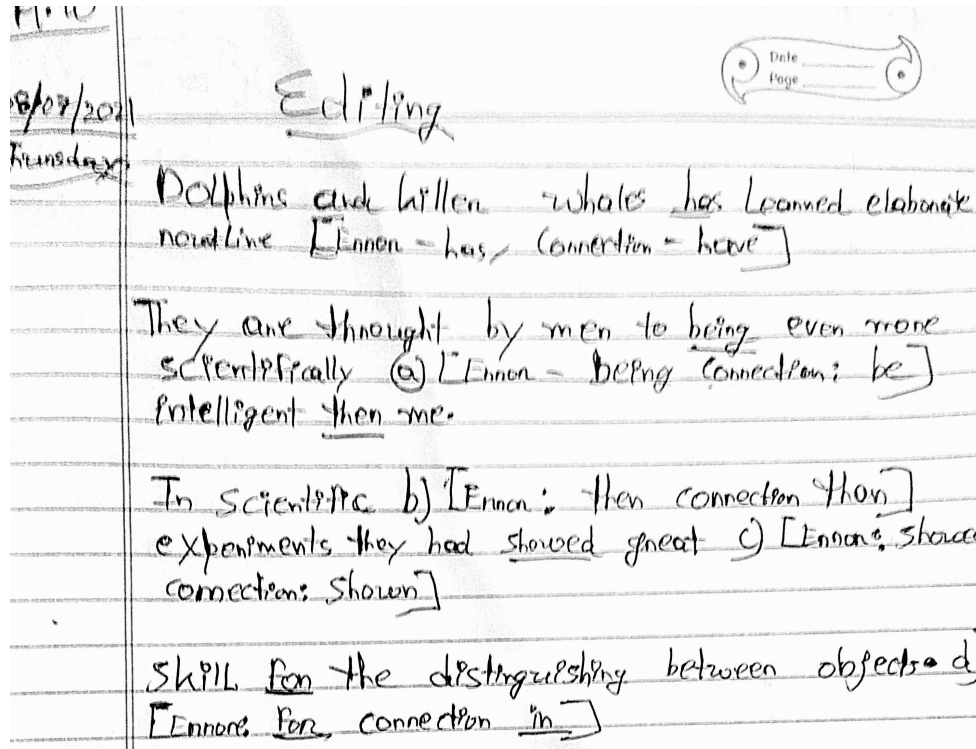 H.W
08/07/2021
Thursday
Date
Page
Editing
Dolphins and killer whales has Learned elaborate
routine [Error - has, Correction - have]
They are throught by men to being even more
scientifically (a) [Error - being Correction: be]
intelligent then me.
In scientific b) [Error: then correction than]
experiments they had showed great c) [Error: showed
correction: shown]
Skill for the distinguishing between objects. d)
[Error: for, correction in]